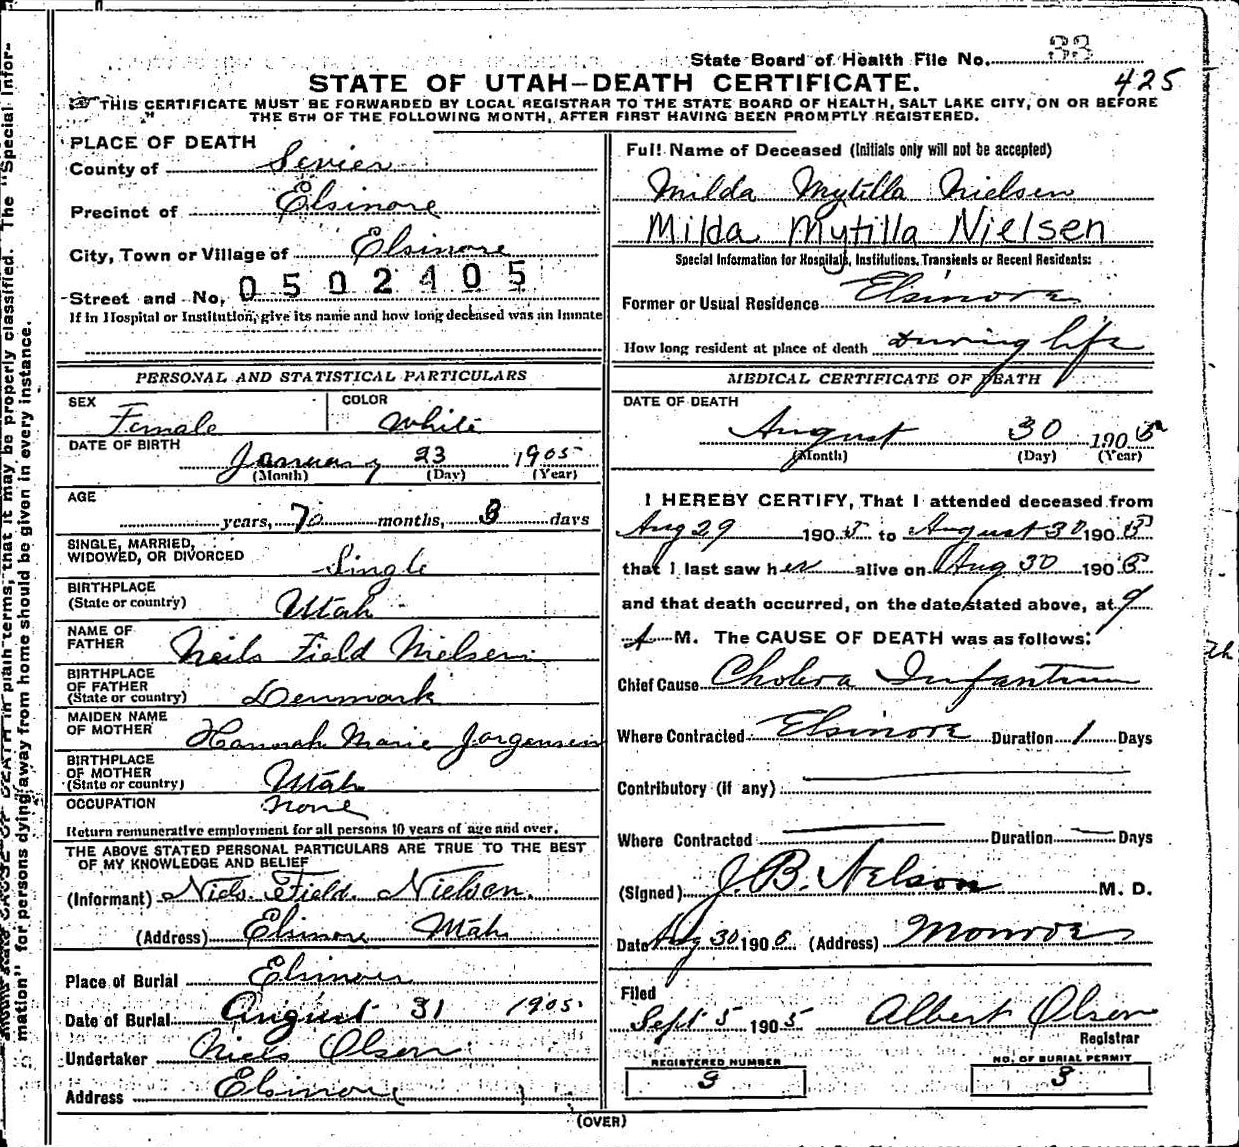 State Board of Health File No. 33
425
STATE OF UTAH—DEATH CERTIFICATE.
THIS CERTIFICATE MUST BE FORWARDED BY LOCAL REGISTRAR TO THE STATE BOARD OF HEALTH, SALT LAKE CITY, ON OR BEFORE
THE 5TH OF THE FOLLOWING MONTH, AFTER FIRST HAVING BEEN PROMPTLY REGISTERED.
PLACE OF DEATH
County of Sevier
Precinct of Elsinore
City, Town or Village of Elsinore
Street and No, 0502405
If in Hospital or Institution, give its name and how long deceased was an Inmate
PERSONAL AND STATISTICAL PARTICULARS
SEX Female COLOR White
DATE OF BIRTH January 23 1905
(Month) (Day) (Year)
AGE years, 7 months, 8 days
SINGLE, MARRIED,
WIDOWED, OR DIVORCED Single
BIRTHPLACE
(State or country) Utah
NAME OF
FATHER Neils Field Nielsen
BIRTHPLACE
OF FATHER
(State or country) Denmark
MAIDEN NAME
OF MOTHER Hannah Marie Jorgensen
BIRTHPLACE
OF MOTHER
(State or country) Utah
OCCUPATION None
Return remunerative employment for all persons 10 years of age and over.
THE ABOVE STATED PERSONAL PARTICULARS ARE TRUE TO THE BEST
OF MY KNOWLEDGE AND BELIEF
(Informant) Niels. Field. Nielsen.
(Address) Elsinore Utah
Place of Burial Elsinore
Date of Burial August 31 1905
Undertaker Niels Olsen
Address Elsinore
Full Name of Deceased (Initials only will not be accepted)
Milda Mytilla Nielsen
Milda Mytilla Nielsen
Special Information for Hospitals, Institutions, Transients or Recent Residents:
Former or Usual Residence Elsinore
How long resident at place of death During life
MEDICAL CERTIFICATE OF DEATH
DATE OF DEATH
August 30 1905
(Month) (Day) (Year)
I HEREBY CERTIFY, That I attended deceased from
Aug 29 1905 to August 30 1905
that I last saw her alive on Aug 30 1905
and that death occurred, on the date stated above, at 9
A M. The CAUSE OF DEATH was as follows:
Chief Cause Cholera Infantum
Where Contracted Elsinore Duration 1 Days
Contributory (if any)
Where Contracted Duration Days
(Signed) J. B. Nelson M. D.
Date Aug 30 1905 (Address) Monroe
Filed
Sept 5 1905 Albert Olsen
Registrar
REGISTERED NUMBER
9
NO. OF BURIAL PERMIT
3
(OVER)
DEATH in plain terms, that it may be properly classified. The "Special Infor-
mation" for persons dying away from home should be given in every instance.